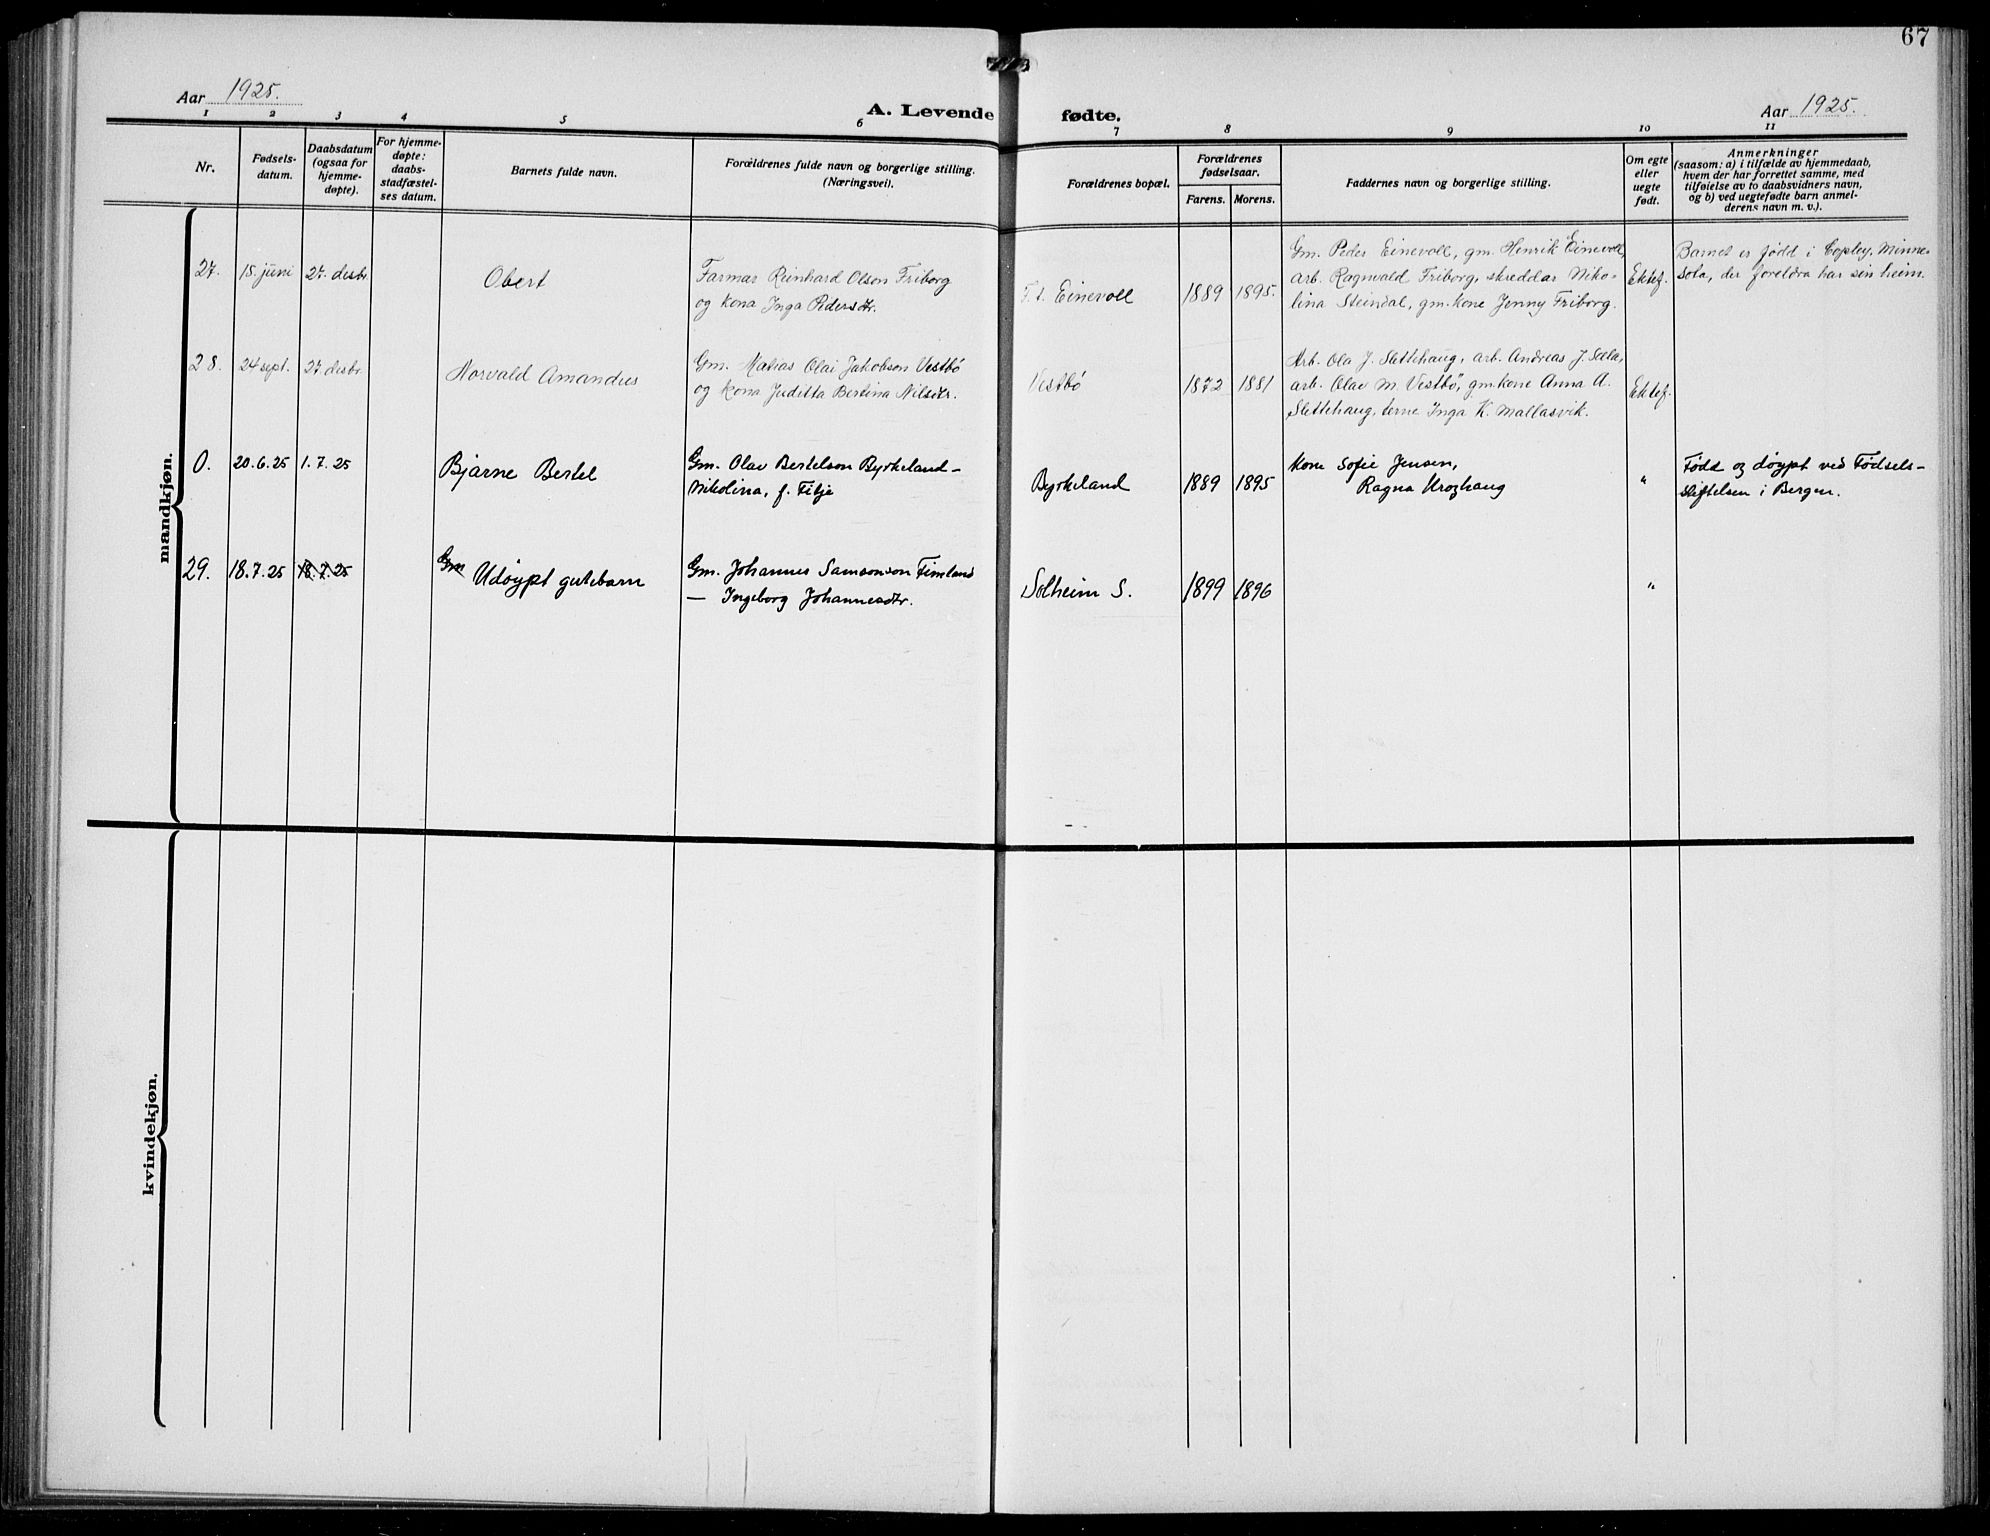 67
Aar 1925.
A. Levende fødte.
Aar 1925.
1 2 3 4 5 6 7 8 9 10 11
Nr.
Fødsels-
datum.
Daabsdatum
(ogsaa for
hjemme-
døpte).
For hjemme-
døpte:
daabs-
stadfæstel-
ses datum.
Barnets fulde navn.
Forældrenes fulde navn og borgerlige stilling.
(Næringsvei).
Forældrenes bopæl.
Forældrenes
fødselsaar.
Farens. Morens.
Faddernes navn og borgerlige stilling.
Om egte
eller
uegte
født.
Anmerkninger
(saasom: a) i tilfælde av hjemmedaab,
hvem der har forrettet samme, med
tilføielse av to daabsvidners navn,
og b) ved uegtefødte barn anmel-
derens navn m. v.).
mandkjøn.
27.
15. juni
27. desbr
Obert
Farmar Reinhard Olson Friborg
og kona Inga Pedersdtr.
F. t. Einevoll
1889
1895.
Gm. Peder Einevoll, gm. Henrik Einevoll,
arb. Ragnvald Friborg, skreddar Niko-
lina Steindal, gm. kone Jenny Friborg.
Ektef.
Barnet er fødd i Copley, Minne-
sota, der foreldra har sin heim.
28.
24 sept.
27 desbr
Norvald Amandus
Gm. Matias Olai Jakobson Vestbö
og kona Juditta Bertina Nilsdtr.
Vestbö
1872
1881
Arb. Ola J. Slettehaug, arb. Andreas J. Sæla,
arb. Olav M. Vestbö, gm. kone Anna A.
Slettehaug, terne Inga K. Mallasvik.
Ektef.
0.
20.6.25
1.7.25
Bjarne Bertel
Gm. Olav Bertelson Byrkeland -
Nikolina, f. Fitje
Byrkeland
1889
1895
Kone Sofie Jensen,
Ragna
"
Född og döypt ved Födsels-
stiftelsen i Bergen.
29.
18.7.25
18.7.25
Gm Udöypt gutebarn
Gm. Johannes Samsonson Fimland
— Ingeborg Johannesdtr.
Solheim S.
1899
1896
"
kvindekjøn.